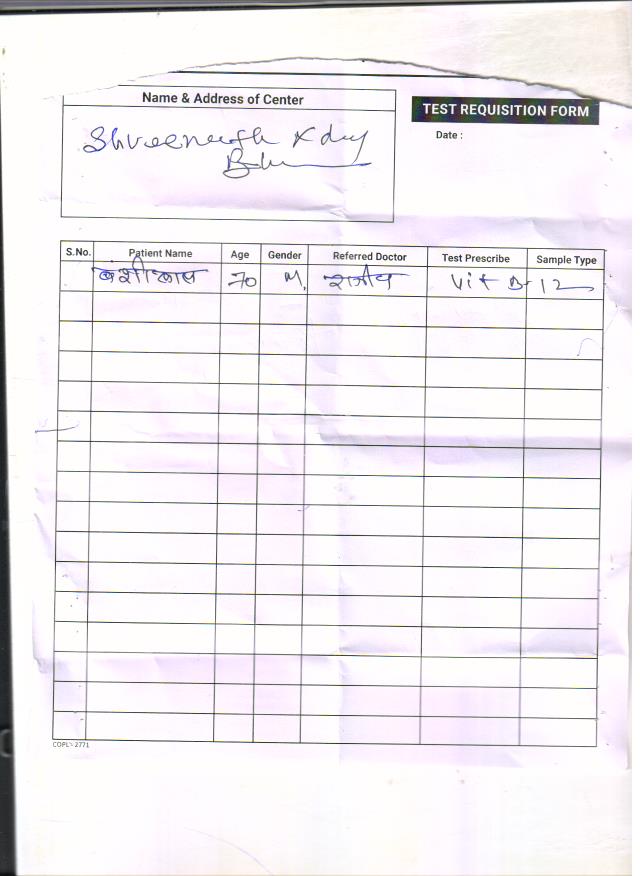 Name & Address of Center
TEST REQUISITION FORM
Date :
S.No. Patient Name Age Gender Referred Doctor Test Prescribe Sample Type
70 M. Vit B-12
COPL-2771